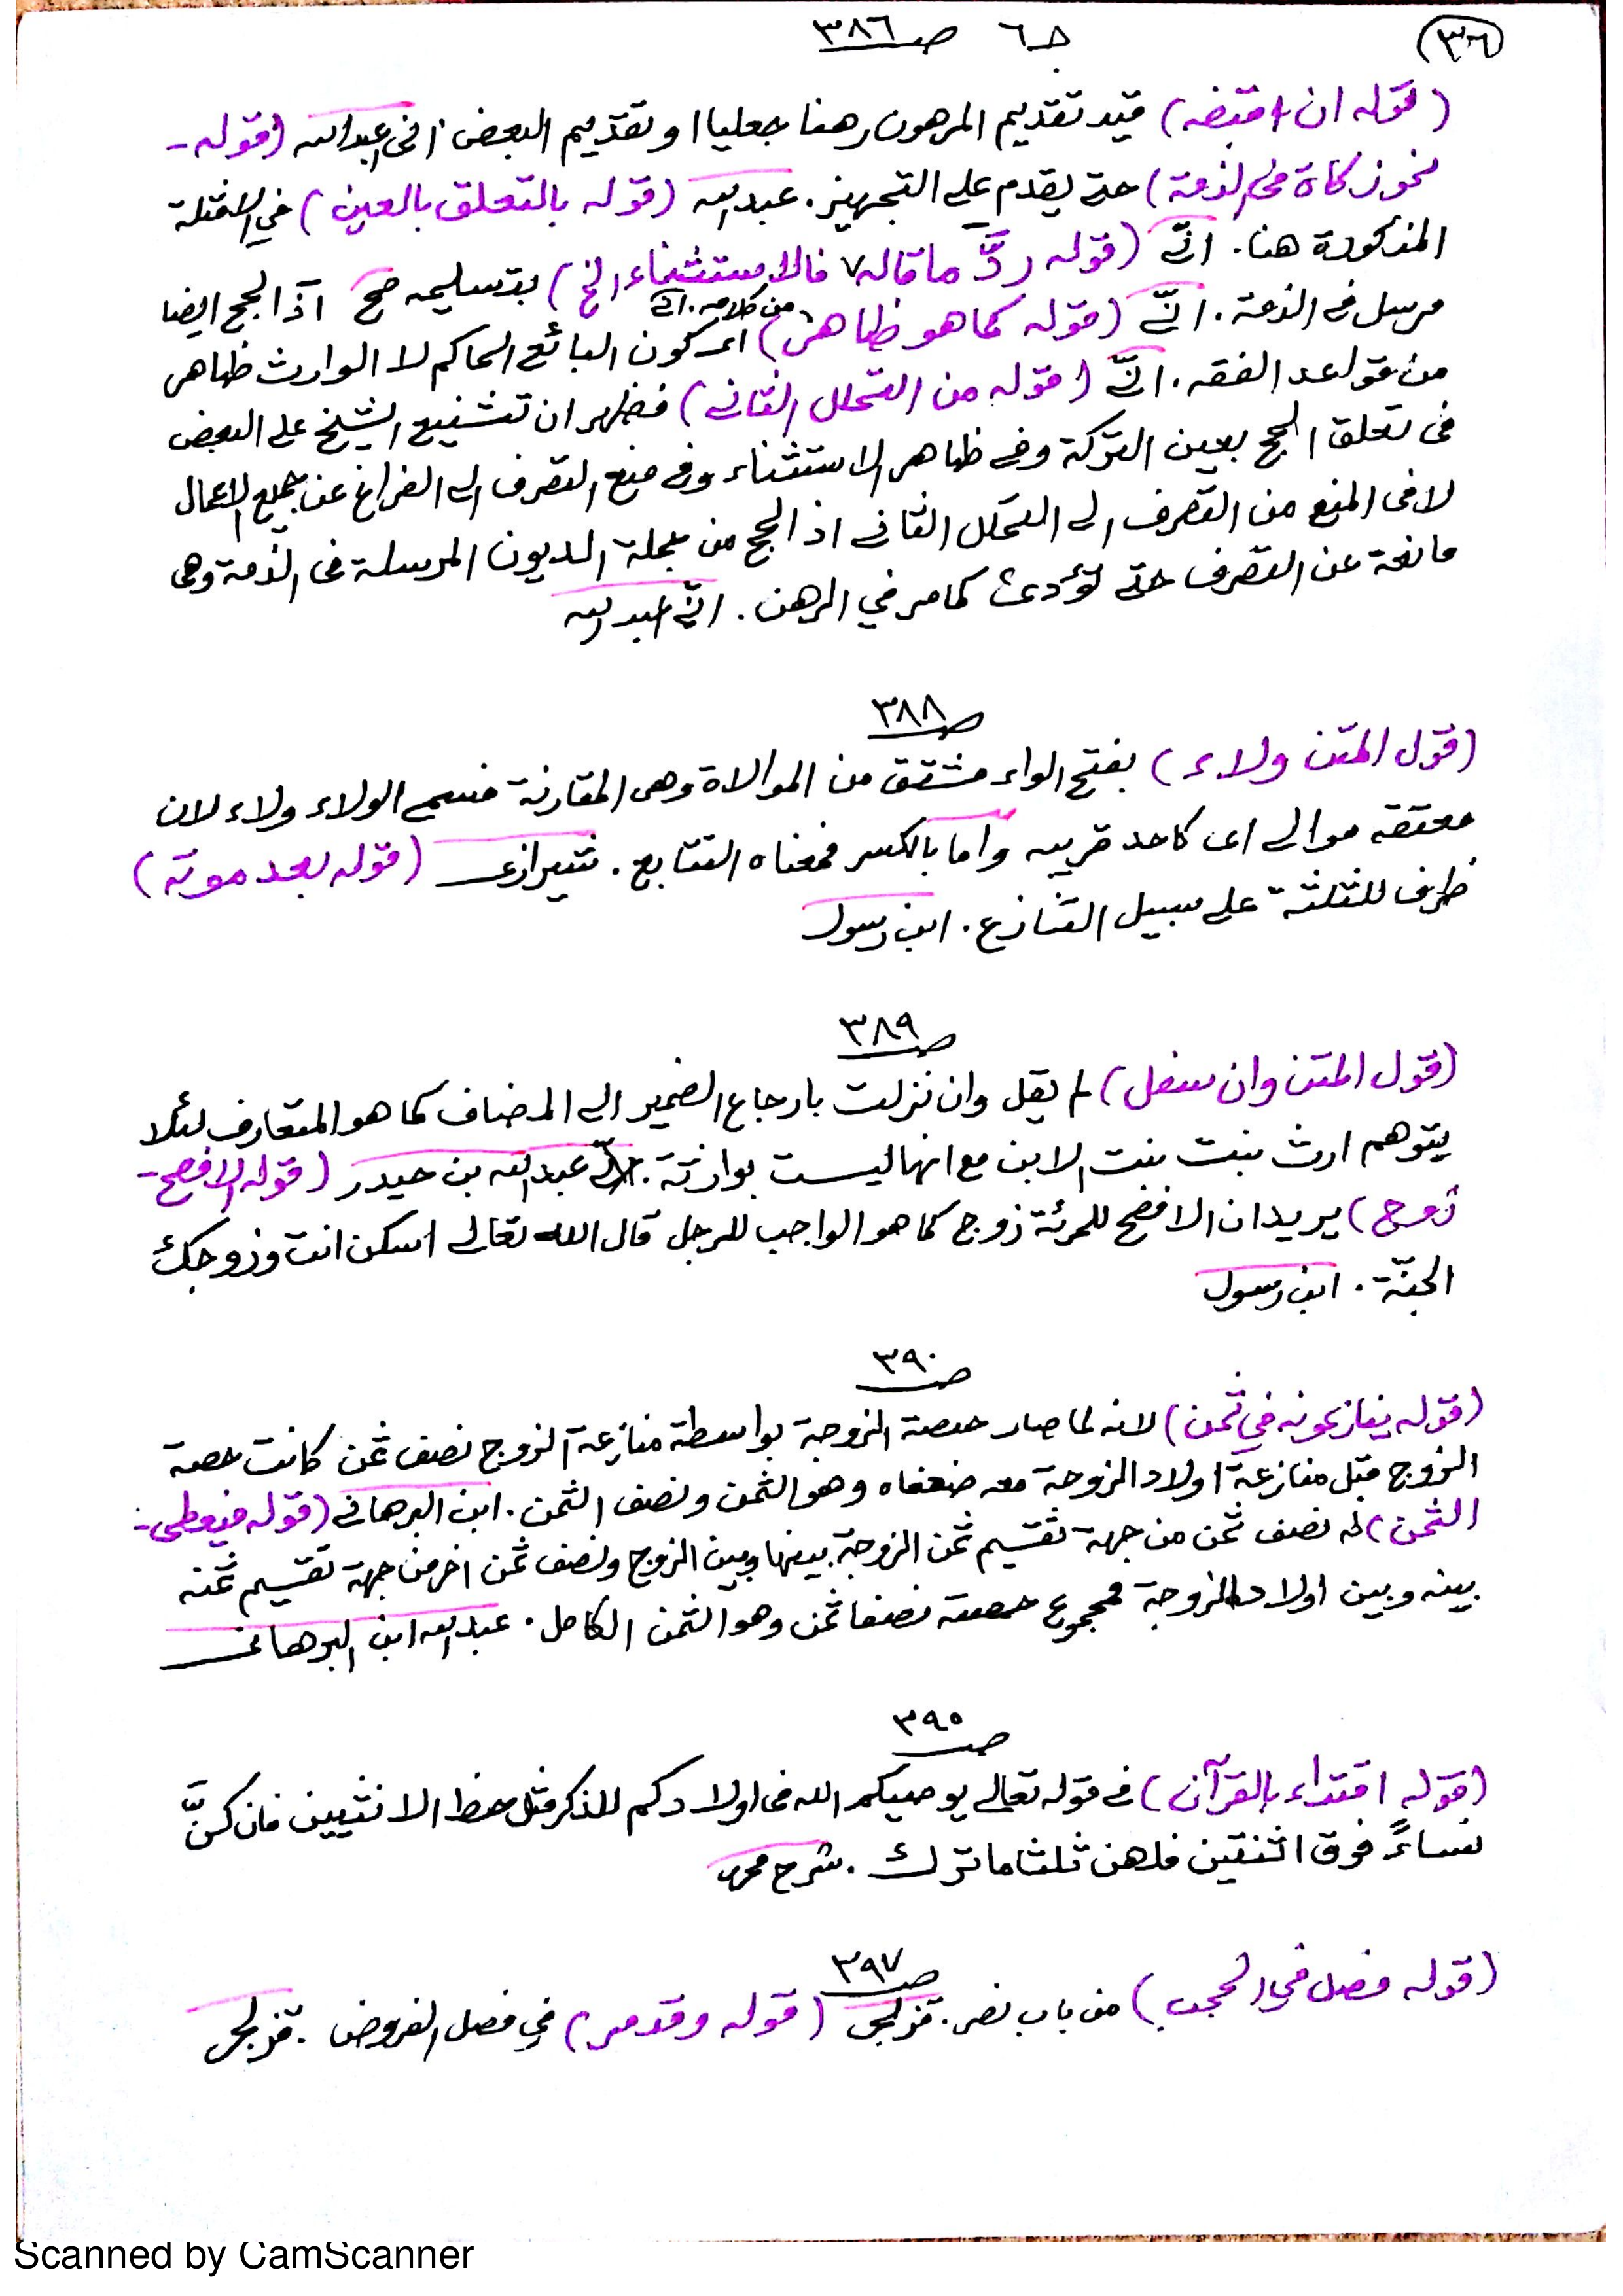 (٣٦)
جـ ٦ صـ ٣٨٦
(قوله ان اقتضه) قيد تقديم المرهون رهنا جعليا او تقديم البعض عبدالله (قوله -
نحو زكاة في الذمة) حتى يقدم على التجهيز. عبدالله (قوله بالتعلق بالعين) في الامثلة
المذكورة هنا. انّي (قوله ردَّ ما قاله ٧ فالاستثناء الخ) بتسليمه صح اذ الحج ايضا
٧ من كلامه. انّي
مرسل في الذمة. انّي (قوله كما هو ظاهر) اى كون البائع الحاكم لا الوارث ظاهر
من قواعد الفقه. انّي (قوله من التحلل الثاني) فظهر ان تشنيع الشيخ على البعض
في تعلق الحج بعين التركة وفي ظاهر الاستثناء وفي منع التصرف الى الفراغ عن جميع الاعمال
لا في المنع من التصرف الى التحلل الثاني اذ الحج من جملة الديون المرسلة في الذمة وهي
مانعة عن التصرف حتى تؤدى كما مر في الرهن. انّي عبدالله
صـ ٣٨٨
(قول المتن ولاء) بفتح الواو مشتق من الموالاة وهي المقارنة فسمي الولاء ولاء لان
معتقه موالي اى كاحد قريبه واما بالكسر فمعناه التتابع. شيرازى (قوله بعد موته)
ظرف للثلثة على سبيل التنازع. ابن رسول
صـ ٣٨٩
(قول المتن وان سفل) لم يقل وان نزلت بارجاع الضمير الى المضاف كما هو المتعارف لئلا
يتوهم ارث بنت بنت الابن مع انها ليست بوارثة. عبدالله بن حيدر (قوله الافصح -
زوج) يريد ان الافصح للمرئة زوج كما هو الواجب للرجل قال الله تعالى اسكن انت وزوجك
الجنّة. ابن رسول
صـ ٣٩٠
(قوله ينازعونه في ثمن) لانه لما صار حصة الزوجة بواسطة منازعة الزوج نصف ثمن كانت حصة
الزوج قبل منازعة اولاد الزوجة معه ضعفاه وهو الثمن ونصف الثمن. ابن البرهانى (قوله فيعطى -
الثمن) له نصف ثمن من جهة تقسيم ثمن الزوجة بينها وبين الزوج ونصف ثمن اخر من جهة تقسيم ثمنه
بينه وبين اولاد الزوجة فمجموع حصته نصفا ثمن وهو الثمن الكامل. عبدالله ابن البرهانى
صـ ٣٩٥
(قوله اقتداء بالقرآن) في قوله تعالى يوصيكم الله في اولادكم للذكر مثل حظ الانثيين فان كنَّ
نساءً فوق اثنتين فلهن ثلثا ما ترك. شرح محرر
صـ ٣٩٧
(قوله فصل في الحجب) من باب نصر. قزلجى (قوله وقد مر) في فصل الفروض. قزلجى
Scanned by CamScanner